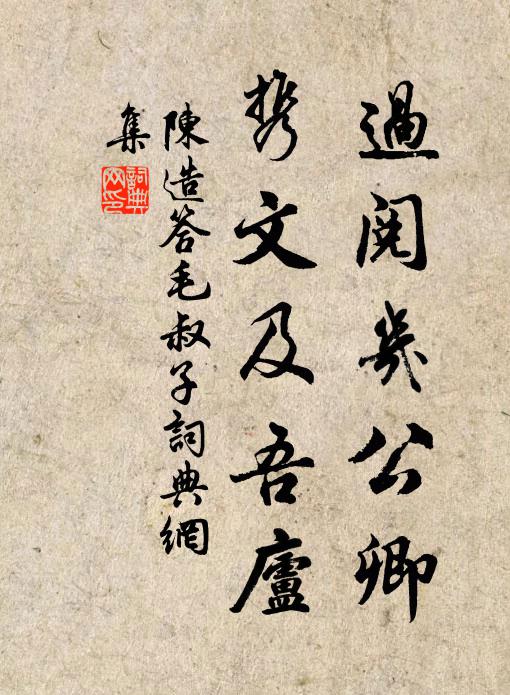 過閱幾公卿
携文及吾廬
陳造答毛叔子詞典網
集
詞典
网印